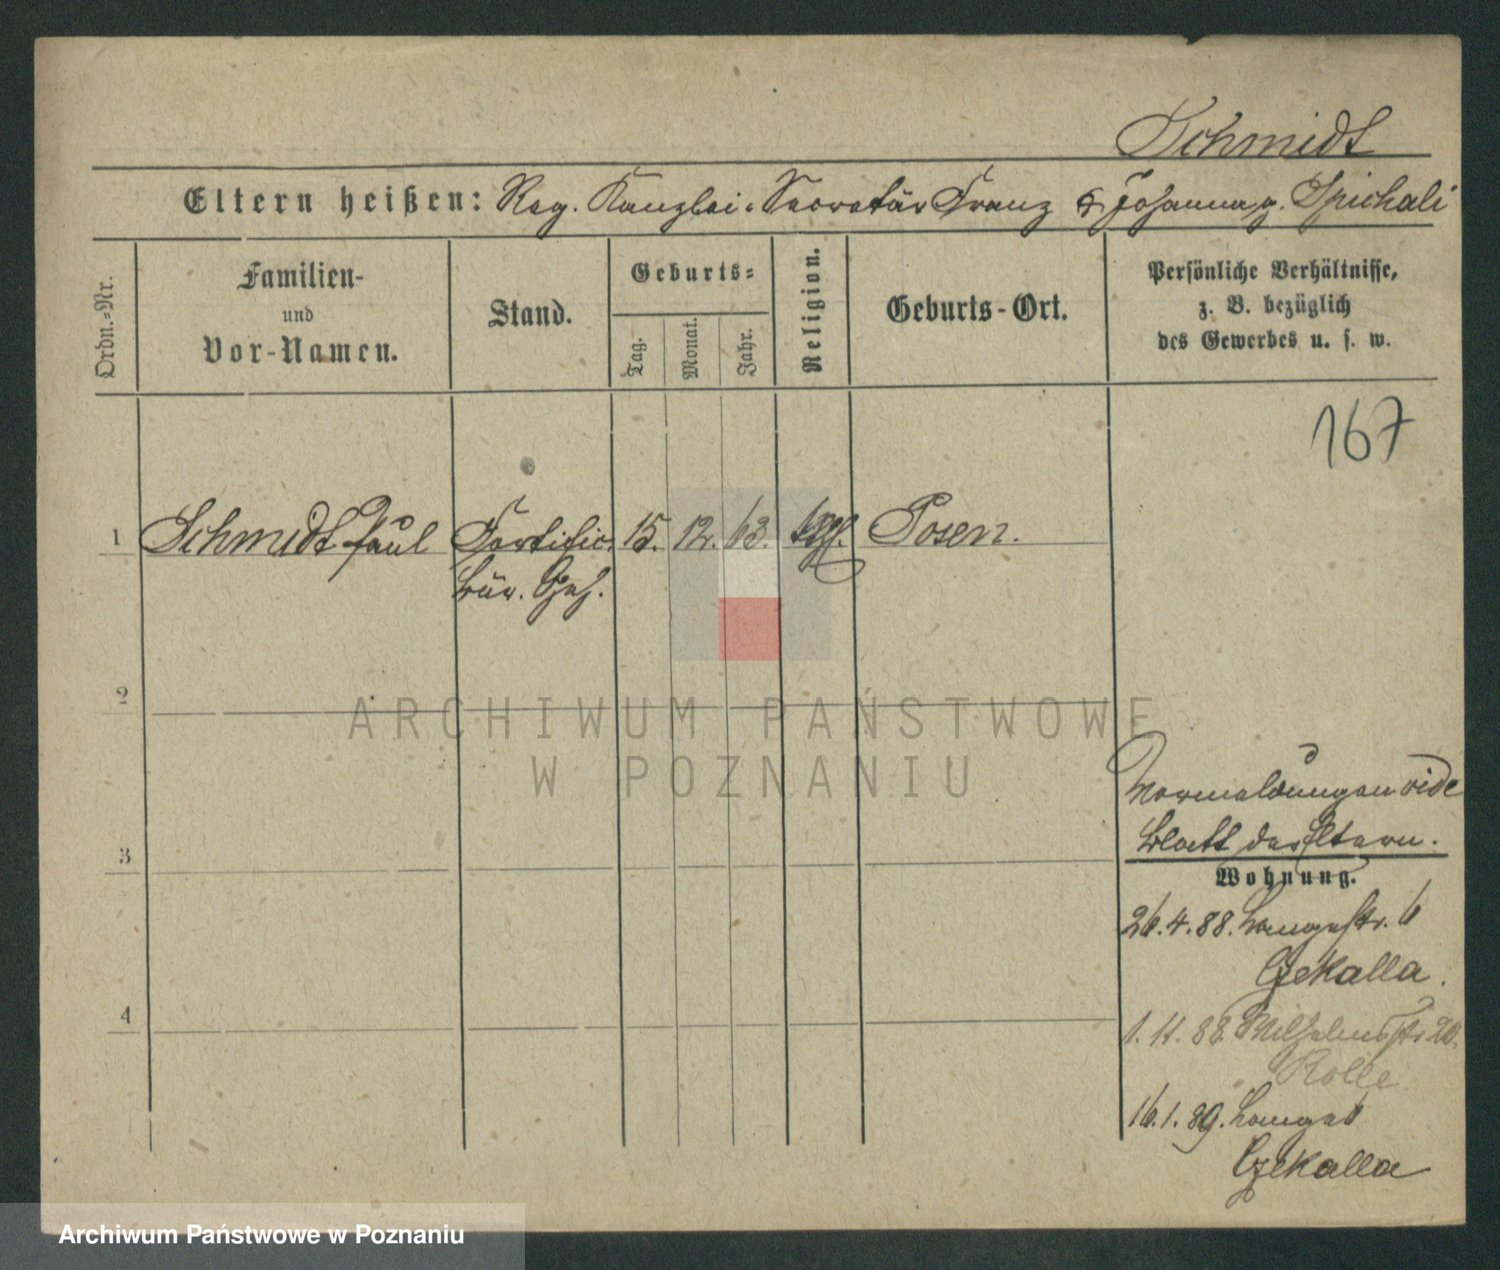 Schmidt
Eltern heißen: Reg. Kanzlei-Secretär Franz & Johanna g. Spichali
Ordn.-Nr.
Familien-
und
Vor-Namen.
Stand.
Geburts-
Tag.
Monat.
Jahr.
Religion.
Geburts-Ort.
Persönliche Verhältnisse,
z. B. bezüglich
des Gewerbes u. s. w.
167
1 Schmidt Paul Fortific. 15. 12. 63. Posen.
Bür. Geh.
2
ARCHIWUM PAŃSTWOWE
W POZNANIU
Vormeldungen vide
Blatt der Eltern.
3
Wohnung.
26.4.88. Langestr. 6
Czekalla.
4
1.11.88. Wilhelmsstr 20.
Rolle
16.1.89. Lange 6
Czekalla
Archiwum Państwowe w Poznaniu